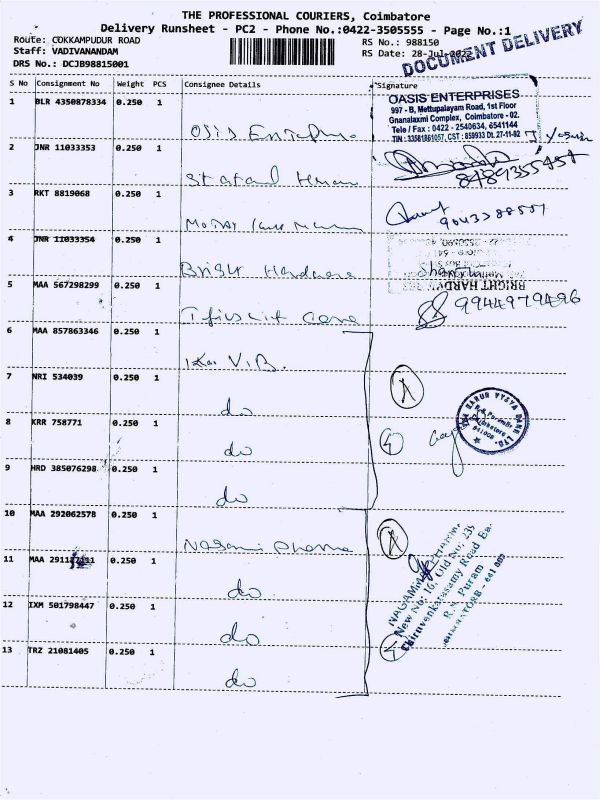 THE PROFESSIONAL COURIERS, Coimbatore
Delivery Runsheet - PC2 - Phone No.:0422-3505555 - Page No.:1
Route: COKKAMPUDUR ROAD
Staff: VADIVANANDAM
DRS No.: DCJB98815001
RS No.: 988150
RS Date: 28-Jul-2022
DOCUMENT DELIVERY
S No Consignment No Weight PCS Consignee Details Signature
1 BLR 4350878334 0.250 1
OASIS ENTERPRISES
997 - B, Mettupalayam Road, 1st Floor
Gnanalaxmi Complex, Coimbatore - 02.
Tele / Fax : 0422 - 2540634, 6541144
TIN : 33581861057, CST : 859933 Dt. 27-11-92
2 JNR 11033353 0.250 1
8489355454
3 RKT 8819068 0.250 1
9043388507
4 JNR 11033354 0.250 1 Bright Hardware
BRIGHT HARDW
5 MAA 567298299 0.250 1
9944979496
6 MAA 857863346 0.250 1 V.B.
7 NRI 534039 0.250 1 do
8 KRR 758771 0.250 1 do
9 HRD 385076298 0.250 1 do
KARUR VYSYA BANK LTD.
641008
10 MAA 292062578 0.250 1 Nagami Pharma
11 MAA 0.250 1 do
12 IXM 501798447 0.250 1 do
13 TRZ 21081405 0.250 1 do
New No: 16, Old No: 235
Thiruvenkatasamy Road Ea.
R.S. Puram
COIMBATORE - 641 002